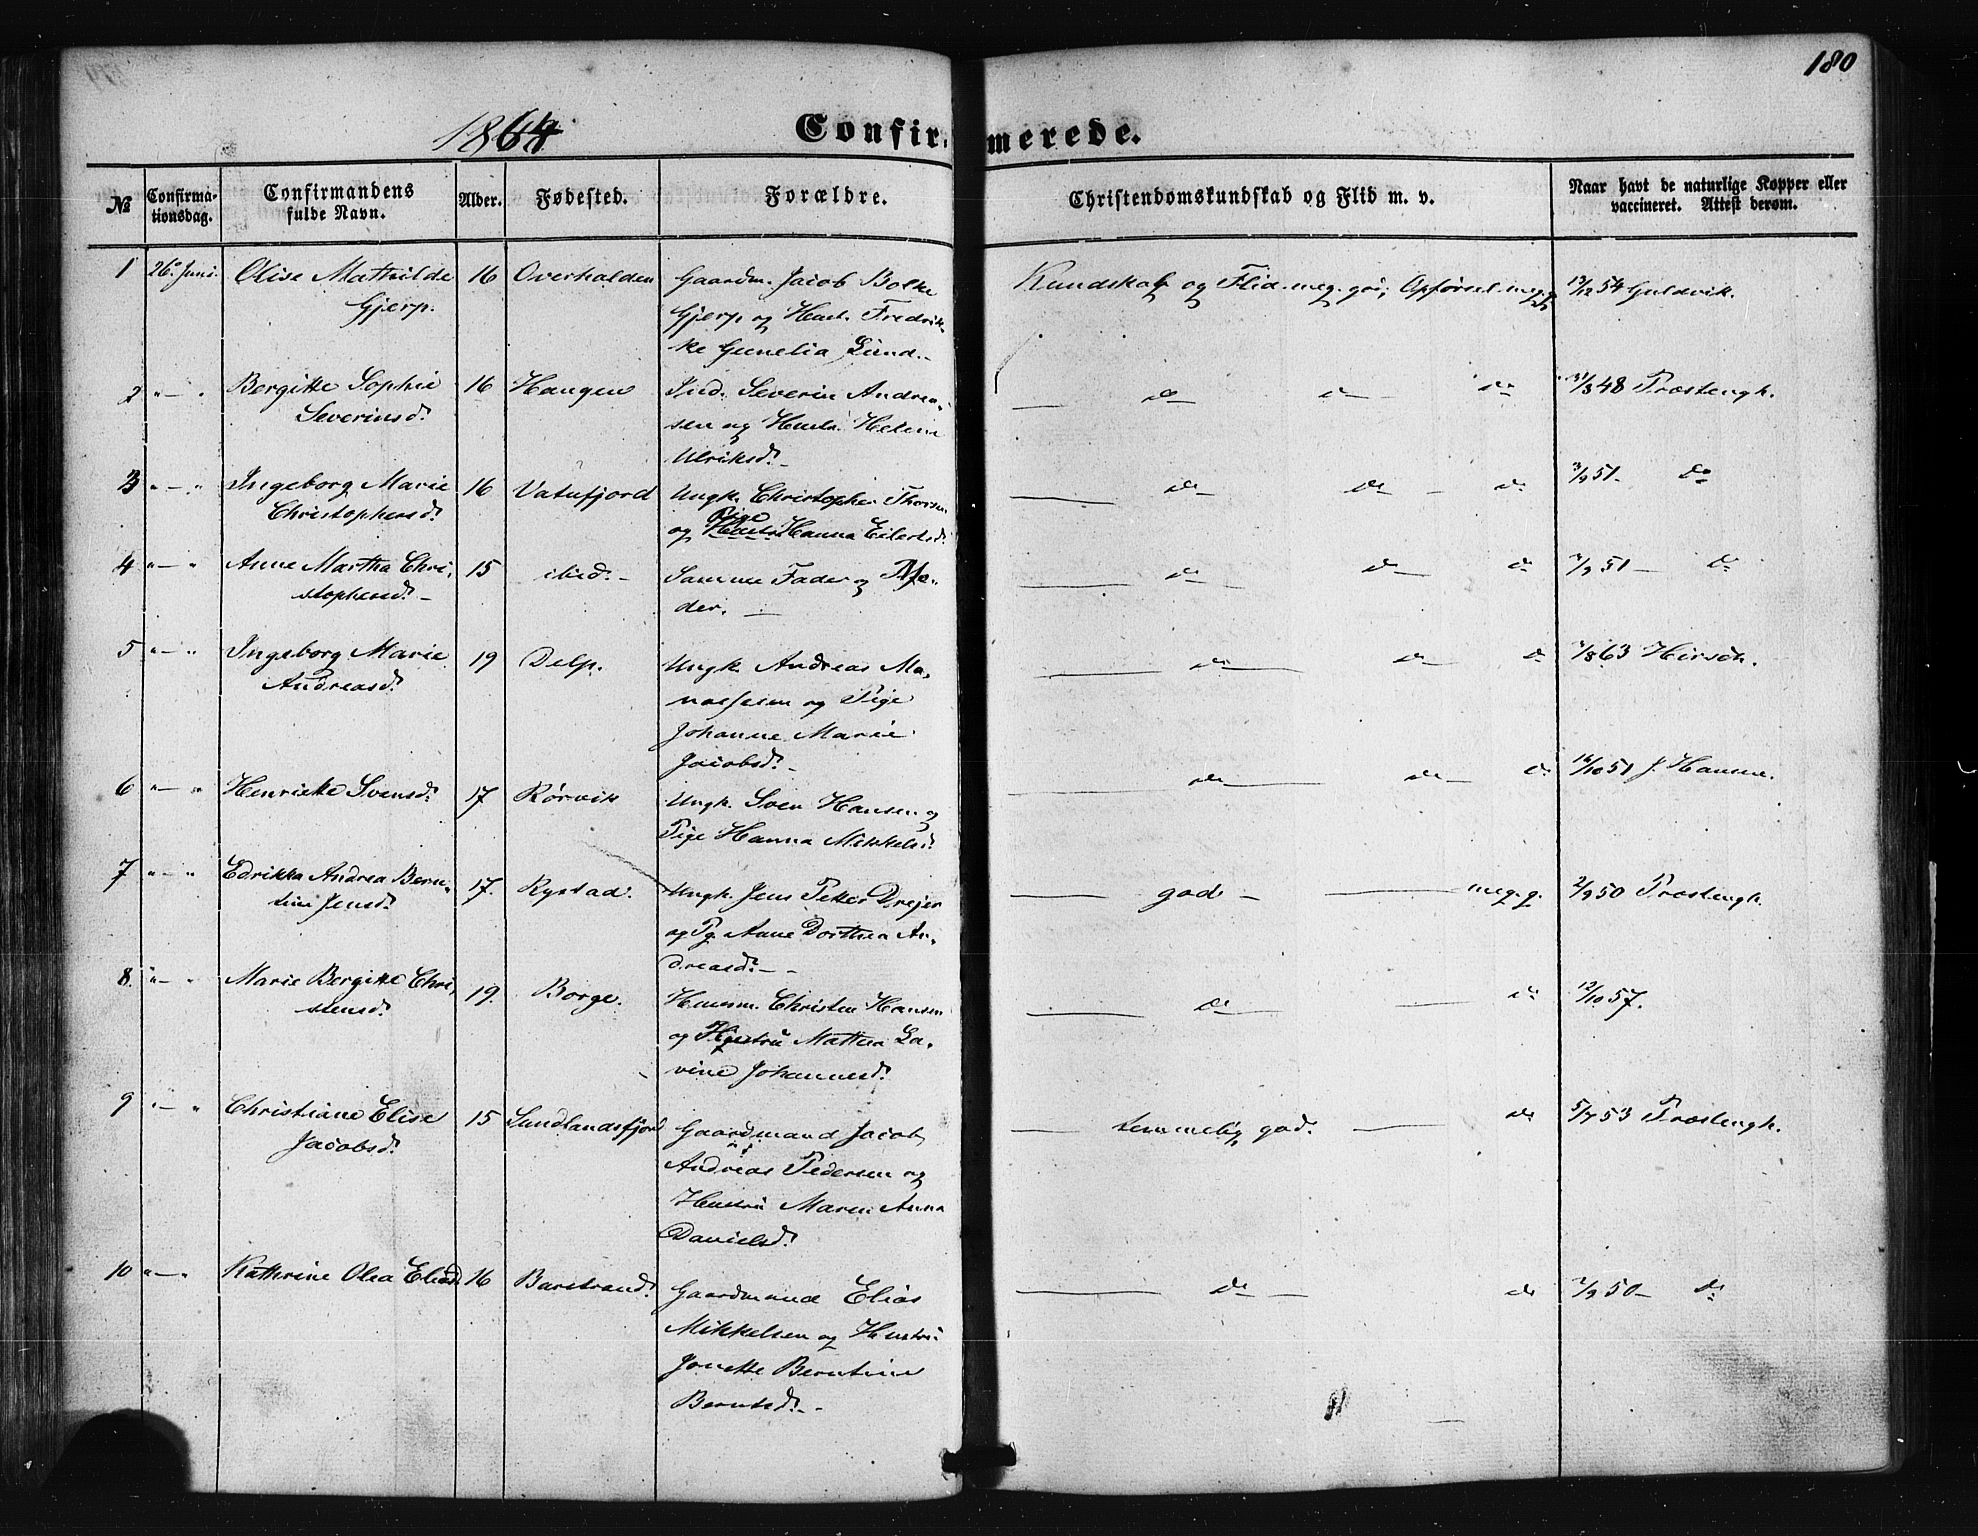 180
1864 Confirmerede.
№ Confirmationsdag. Confirmandens fulde Navn. Alder. Fødested. Forældre. Christendomskundskab og Flid m. v. Naar havt de naturlige Kopper eller vaccineret. Attest derom.
1 26. Juni. Olise Mathilde 16 Overhalden Gaardm. Jacob Bolke Kundskab og Flid meg. god; Opførsel meg. g. 13/12 54 Guldvik.
Gjerp. Gjerp og Hust. Fredrik-
ke Gunelia Lund.
2 " — " Bergitte Sophie 16 Haugen Ind. Severin Andrea- do do do 31/3 48 Præstengh.
Severinsd. sen og Hustr.
Ulriksd.
3 " — " Ingeborg Marie 16 Vatnfjord Ungk. Christopher Thorsen do do do 3/9 51. do
Christophersd. og Pige Hustr. Hanna Eilertsd.
4 " — " Anne Martha Chri- 15 ibid. Samme Fader og Mo- do do do 7/9 51 — do
stophersd. der.
5 " — " Ingeborg Marie 19 Delp. Ungk. Andreas Ma- do do do 7/8 63 Hirsch.
Andreasd. og Pige
Johanne Marie
Jacobsd.
6 " — " Henrikke Svensd. 17 Rørvik Ungk. Sven Hansen og do do do 16/10 51 J. Hansen.
Pige Hanna Mikkelsd.
7 " — " Edrikka Andrea Bern- 17. Rystad. Ungk. Jens Petter Drejer god — meg. g. 2/9 50 Præstengh.
tine Jensd. og Pg. Anne Dorthea An-
dreasd.
8. " — " Marie Bergitte Chri- 19. Borge. Husm. Christen Hansen do do 12/10 57.
stensd. og Hustru Mathea La-
vine Johannesd.
9 " — " Christiane Elise 15 Sundlandsfjord Gaardmand Jacob temmelig god. do 5/7 53 Præstengh.
Jacobsd. Andreas Pedersen og
Hustru Maren Anna
Danielsd.
10 " — " Kathrine Olea Eliasd. 16 Barstrand. Gaardmand Elias do do 2/9 50 — do
Mikkelsen og Hustru
Jonette Berntine
Berntsd.